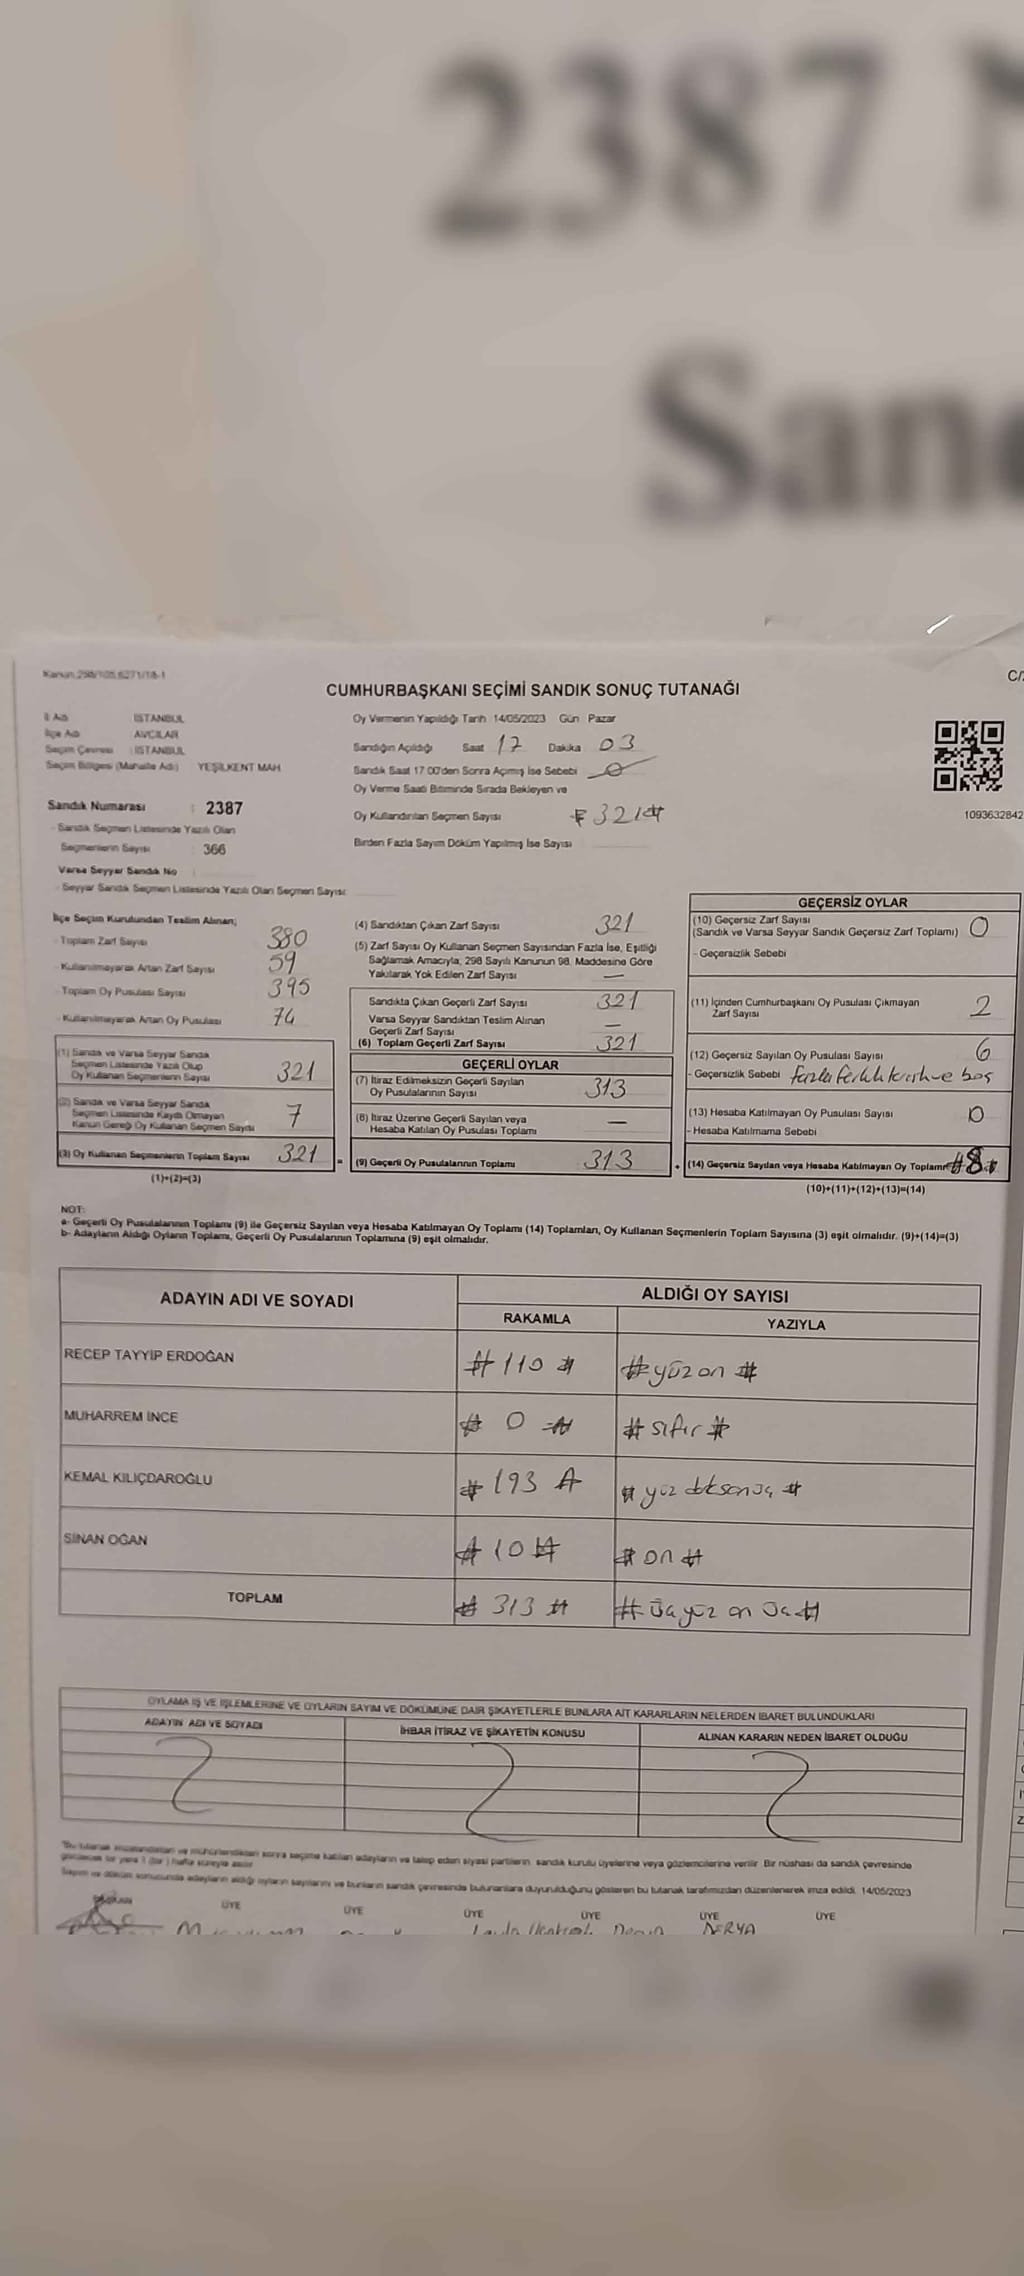 2387
Sand
Kanun.298/105,6271/18-1
CUMHURBAŞKANI SEÇİMİ SANDIK SONUÇ TUTANAĞI
İl Adı İSTANBUL
İlçe Adı AVCILAR
Seçim Çevresi : İSTANBUL
Seçim Bölgesi (Mahalle Adı) YEŞİLKENT MAH
Oy Vermenin Yapıldığı Tarih 14/05/2023 Gün Pazar
Sandığın Açıldığı Saat 17 Dakika 03
Sandık Saat 17.00'den Sonra Açımış İse Sebebi
Oy Verme Saati Bitiminde Sırada Bekleyen ve
Oy Kullandırılan Seçmen Sayısı 321#
Birden Fazla Sayım Döküm Yapılmış İse Sayısı
1093632842
Sandık Numarası : 2387
- Sandık Seçmen Listesinde Yazılı Olan
Seçmenlerin Sayısı : 366
Varsa Seyyar Sandık No
- Seyyar Sandık Seçmen Listesinde Yazılı Olan Seçmen Sayısı:
İlçe Seçim Kurulundan Teslim Alınan;
- Toplam Zarf Sayısı 380
- Kullanılmayarak Artan Zarf Sayısı 59
- Toplam Oy Pusulası Sayısı 395
- Kullanılmayarak Artan Oy Pusulası 74
(1) Sandık ve Varsa Seyyar Sandık
Seçmen Listesinde Yazılı Olup
Oy Kullanan Seçmenlerin Sayısı 321
(2) Sandık ve Varsa Seyyar Sandık
Seçmen Listesinde Kaydı Olmayan
Kanun Gereği Oy Kullanan Seçmen Sayısı 7
(3) Oy Kullanan Seçmenlerin Toplam Sayısı 321
(1)+(2)=(3)
(4) Sandıktan Çıkan Zarf Sayısı 321
(5) Zarf Sayısı Oy Kullanan Seçmen Sayısından Fazla İse, Eşitliği
Sağlamak Amacıyla; 298 Sayılı Kanunun 98. Maddesine Göre
Yakılarak Yok Edilen Zarf Sayısı —
Sandıkta Çıkan Geçerli Zarf Sayısı 321
Varsa Seyyar Sandıktan Teslim Alınan
Geçerli Zarf Sayısı —
(6) Toplam Geçerli Zarf Sayısı 321
GEÇERLİ OYLAR
(7) İtiraz Edilmeksizin Geçerli Sayılan
Oy Pusulalarının Sayısı 313
(8) İtiraz Üzerine Geçerli Sayılan veya
Hesaba Katılan Oy Pusulası Toplamı —
= (9) Geçerli Oy Pusulalarının Toplamı 313
GEÇERSİZ OYLAR
(10) Geçersiz Zarf Sayısı
(Sandık ve Varsa Seyyar Sandık Geçersiz Zarf Toplamı) 0
- Geçersizlik Sebebi
(11) İçinden Cumhurbaşkanı Oy Pusulası Çıkmayan
Zarf Sayısı 2
(12) Geçersiz Sayılan Oy Pusulası Sayısı 6
- Geçersizlik Sebebi ve boş
(13) Hesaba Katılmayan Oy Pusulası Sayısı 0
- Hesaba Katılmama Sebebi
+ (14) Geçersiz Sayılan veya Hesaba Katılmayan Oy Toplamı #8#
(10)+(11)+(12)+(13)=(14)
NOT:
a- Geçerli Oy Pusulalarının Toplamı (9) ile Geçersiz Sayılan veya Hesaba Katılmayan Oy Toplamı (14) Toplamları, Oy Kullanan Seçmenlerin Toplam Sayısına (3) eşit olmalıdır. (9)+(14)=(3)
b- Adayların Aldığı Oyların Toplamı, Geçerli Oy Pusulalarının Toplamına (9) eşit olmalıdır.
ADAYIN ADI VE SOYADI ALDIĞI OY SAYISI
RAKAMLA YAZIYLA
RECEP TAYYİP ERDOĞAN #110# #yüz on#
MUHARREM İNCE #0# #sıfır#
KEMAL KILIÇDAROĞLU #193# #yüz doksan üç#
SİNAN OĞAN #10# #on#
TOPLAM #313# #üçyüz on üç#
OYLAMA İŞ VE İŞLEMLERİNE VE OYLARIN SAYIM VE DÖKÜMÜNE DAİR ŞİKAYETLERLE BUNLARA AİT KARARLARIN NELERDEN İBARET BULUNDUKLARI
ADAYIN ADI VE SOYADI İHBAR İTİRAZ VE ŞİKAYETİN KONUSU ALINAN KARARIN NEDEN İBARET OLDUĞU
Bu tutanak imzalandıktan ve mühürlendikten sonra seçime katılan adayların ve talep eden siyasi partilerin sandık kurulu üyelerine veya gözlemcilerine verilir. Bir nüshası da sandık çevresinde
görülecek bir yere 1 (bir) hafta süreyle asılır
Sayım ve döküm sonucunda adayların aldığı oyların sayılarını ve bunların sandık çevresinde bulunanlara duyurulduğunu gösteren bu tutanak tarafımızdan düzenlenerek imza edildi. 14/05/2023
BAŞKAN ÜYE ÜYE ÜYE ÜYE ÜYE ÜYE
DERYA